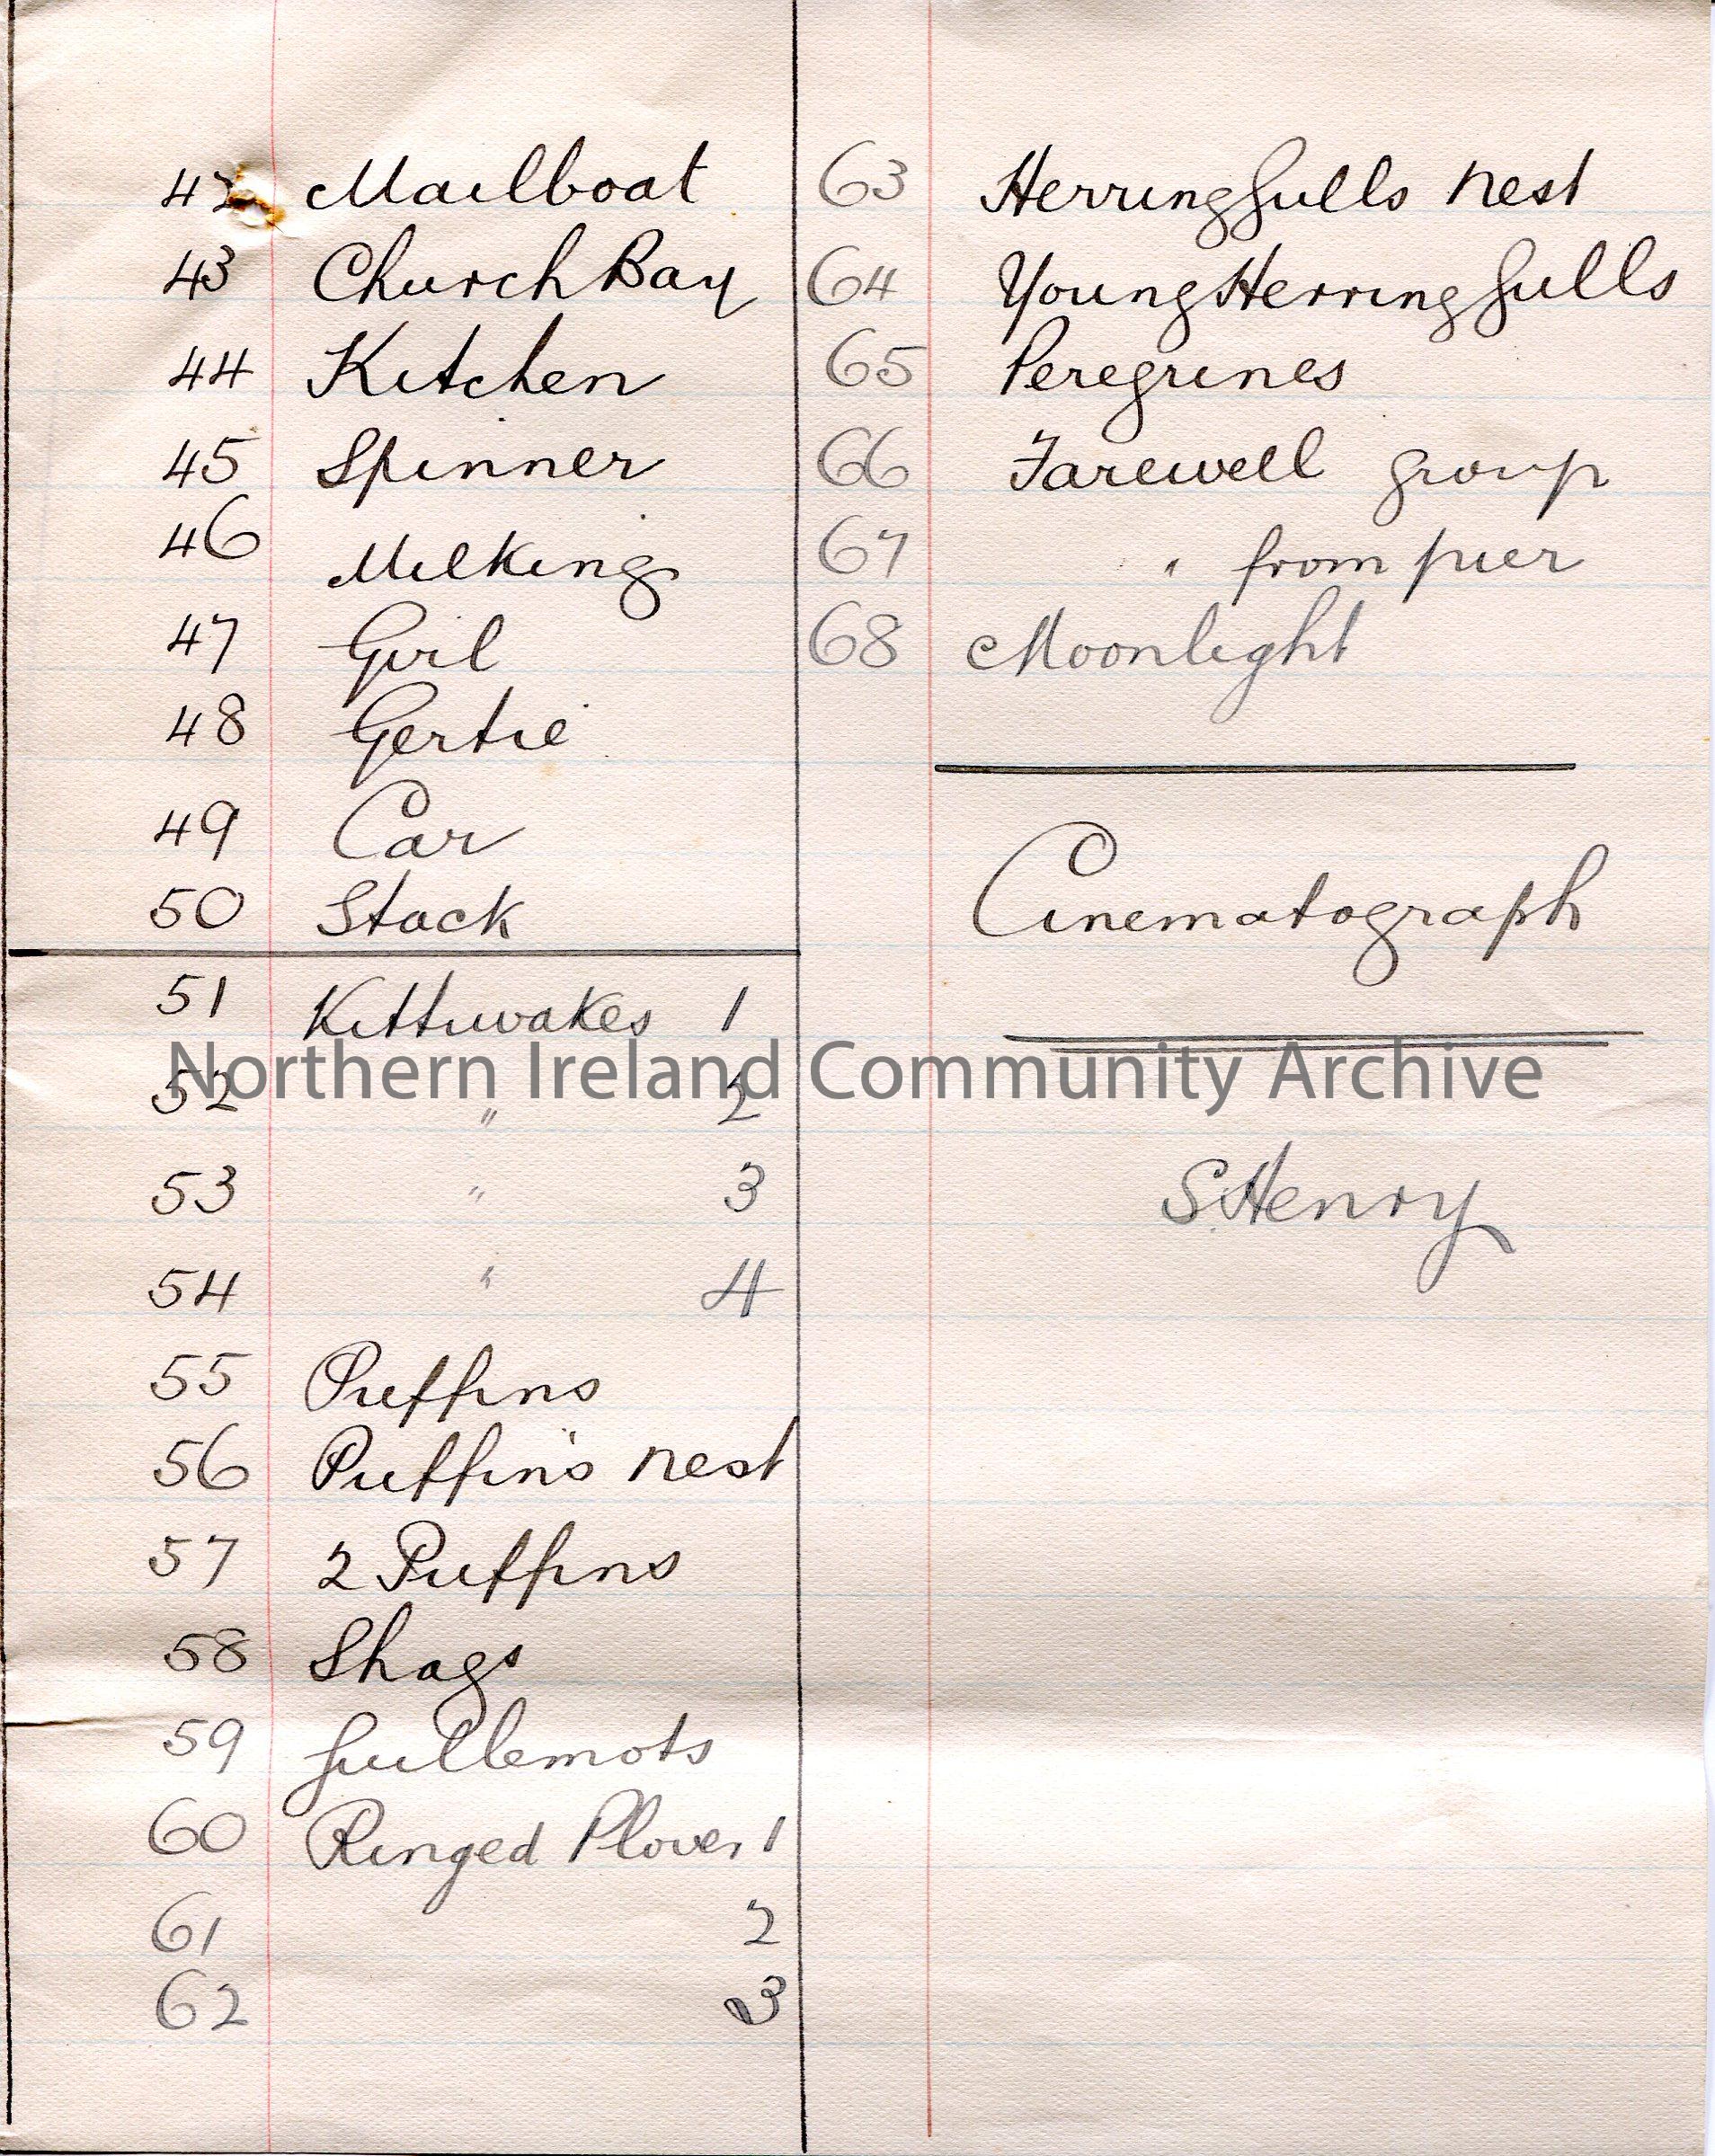 42 Mailboat
43 Church Bay
44 Kitchen
45 Spinner
46 Milking
47
48 Gertie
49 Car
50 Stack
51 Kittiwakes 1
52 " 2
53 " 3
54 " 4
55 Puffins
56 Puffin's nest
57 2 Puffins
58 Shags
59 Guillemots
60 Ringed Plover 1
61 2
62 3
63 Herring Gulls nest
64 Young Herring Gulls
65 Peregrines
66 Farewell group
67 " from pier
68 Moonlight
Cinematograph
S. Henry
Northern Ireland Community Archive